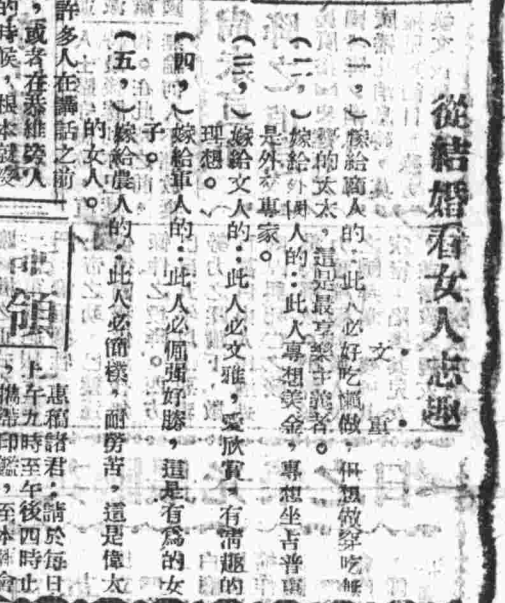 從結婚看女人志趣
文 重
(一,)嫁給商人的:此人必好吃懶做,但想做穿吃無
的太太,這是最享樂主義者。
(二,)嫁給外國人的:此人專想美金,專想坐吉普車
是外交專家。
(三,)嫁給文人的:此人必文雅,愛欣賞,有清趣的
理想。
(四,)嫁給軍人的:此人必倔强好勝,這是有爲的女
子。
(五,)嫁給農人的:此人必簡樸,耐勞苦,這是偉大
的女人。
許多人在講話之前
,或者在恭維旁人
的時候,根本
領
惠稿諸君:請於每日
上午九時至午後四時止
,攜帶印鑑,至本 會